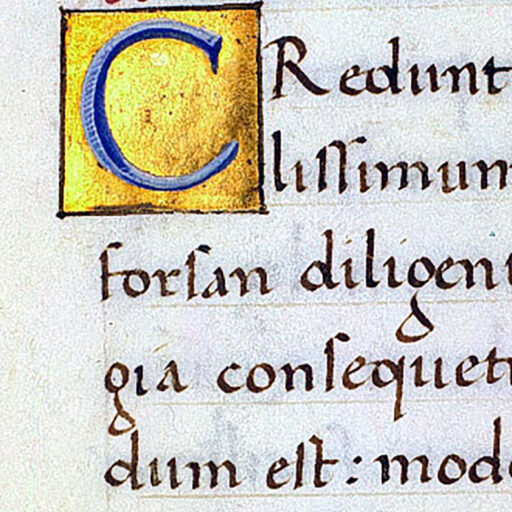 CRedunt
liſſimum
forſan diligen
gia conſequet
dum eſt: mod